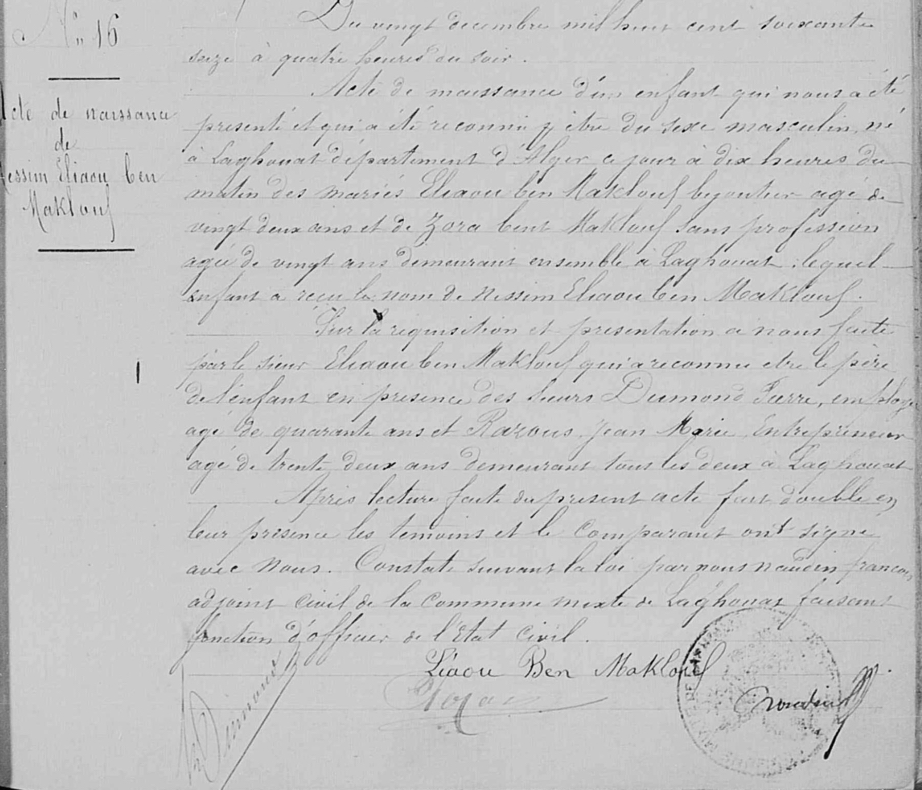 N° 16
Acte de naissance
de
Nessim Eliaou ben
Maklouf
Du vingt decembre mil huit cent soixante
seize à quatre heures du soir.
Acte de naissance d'un enfant qui nous a été
presenté et qui a été reconnu y être du sexe masculin, né
à Laghouat département d'Alger ce jour à dix heures du
matin des mariés Eliaou ben Maklouf bijoutier agé de
vingt deux ans et de Zora bent Maklouf sans profession
agée de vingt ans demeurant ensemble à Laghouat, lequel
enfant a reçu le nom de Nessim Eliaou ben Maklouf.
Sur la requisition et presentation a nous faite
par le sieur Eliaou ben Maklouf qui a reconnu etre le père
de l'enfant en presence des sieurs Dumond Pierre, employé
agé de quarante ans et Razous Jean Marie Entrepreneur
agé de trente deux ans demeurant tous les deux à Laghouat
Après lecture faite du present acte fait double en
leur presence les temoins et le comparant ont signé
avec Nous. Constaté suivant la loi par nous Naudin françois
adjoint civil de la Commune mixte de Laghouat faisant
fonction d'officier de l'Etat Civil.
Liaou Ben Maklouf
Dumond
Naudin